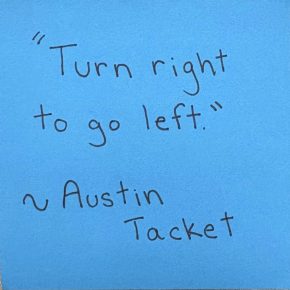 "Turn right
to go left."
~ Austin
Tacket